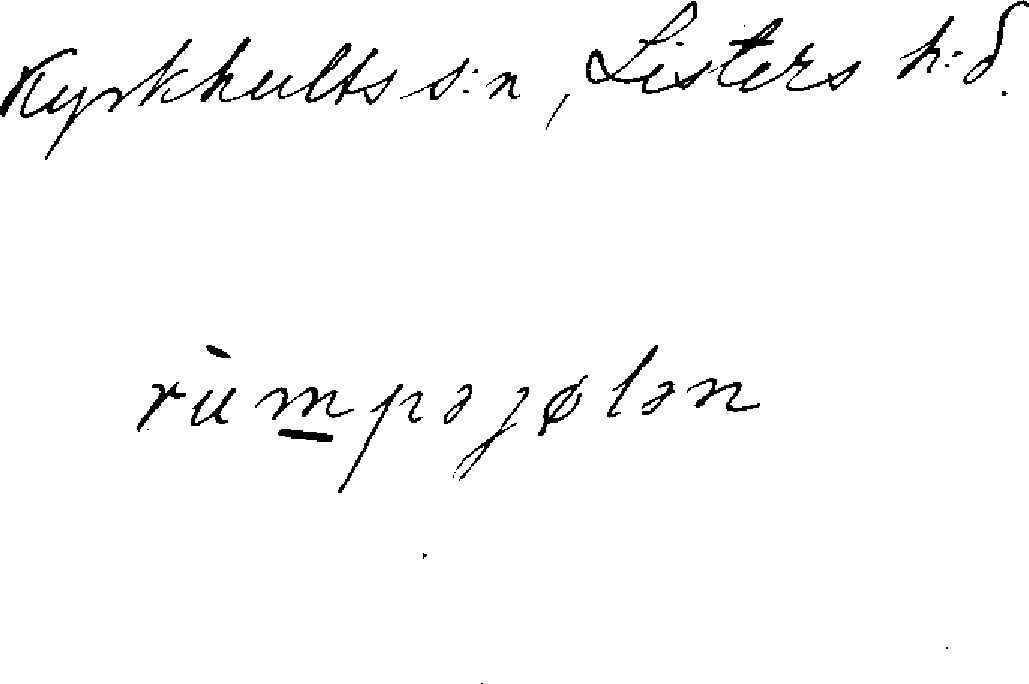 Kyrkhults s:n, Listers h:d.
rùm̲pəjølən